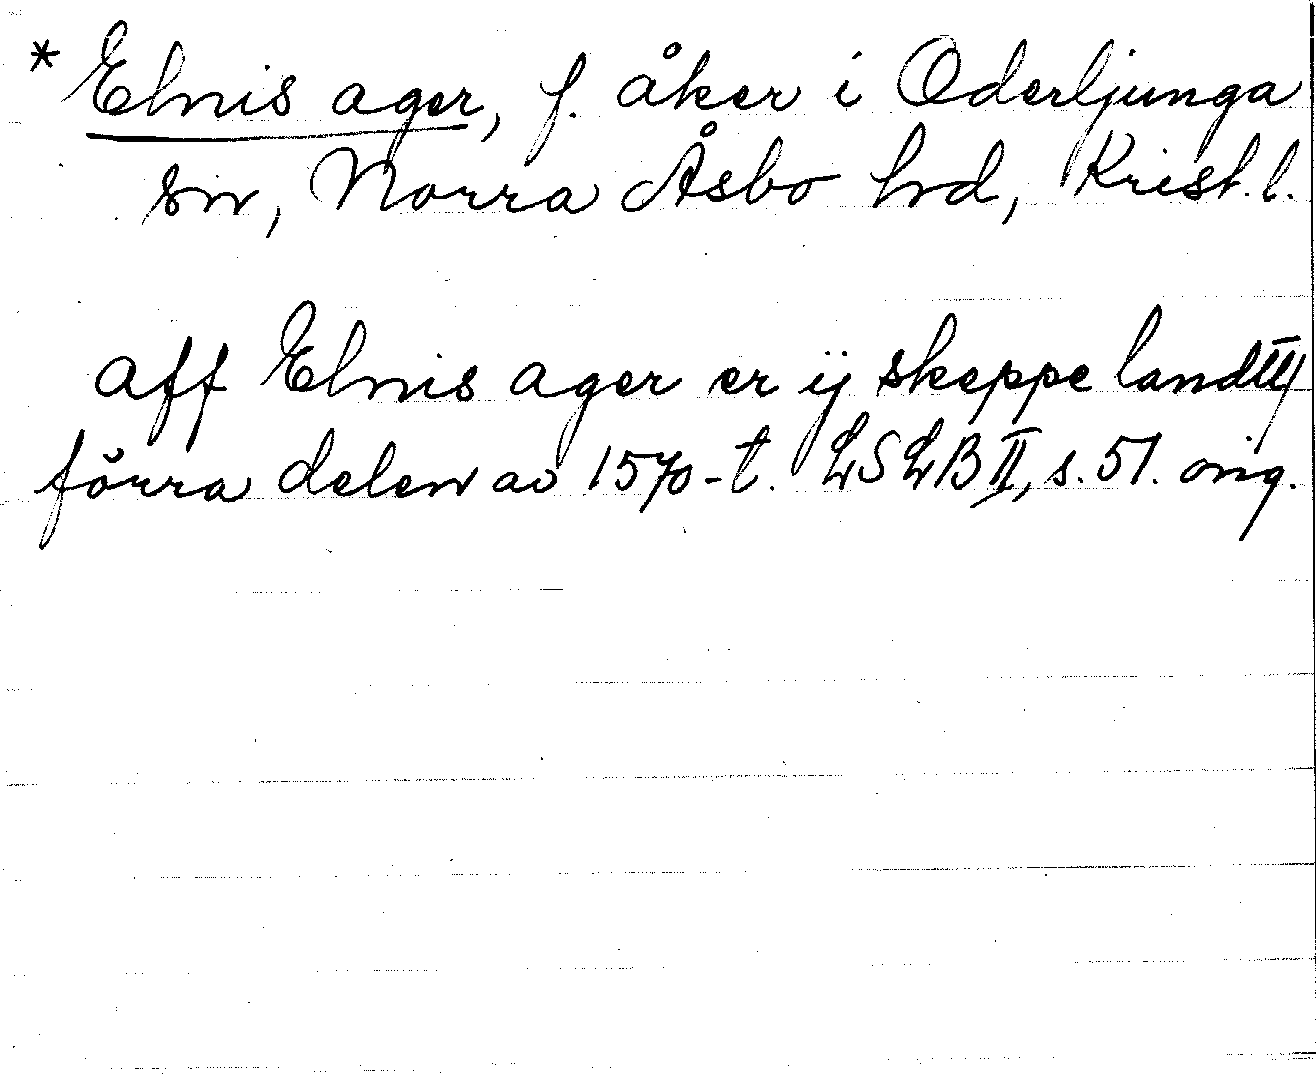 * Elnis ager, f. åker i Oderljunga
sn, Norra Åsbo hd, Krist. l.
aff Elnis ager er ij skeppe landtt
förra delen av 1570-t. LSLB II, s. 51. orig.